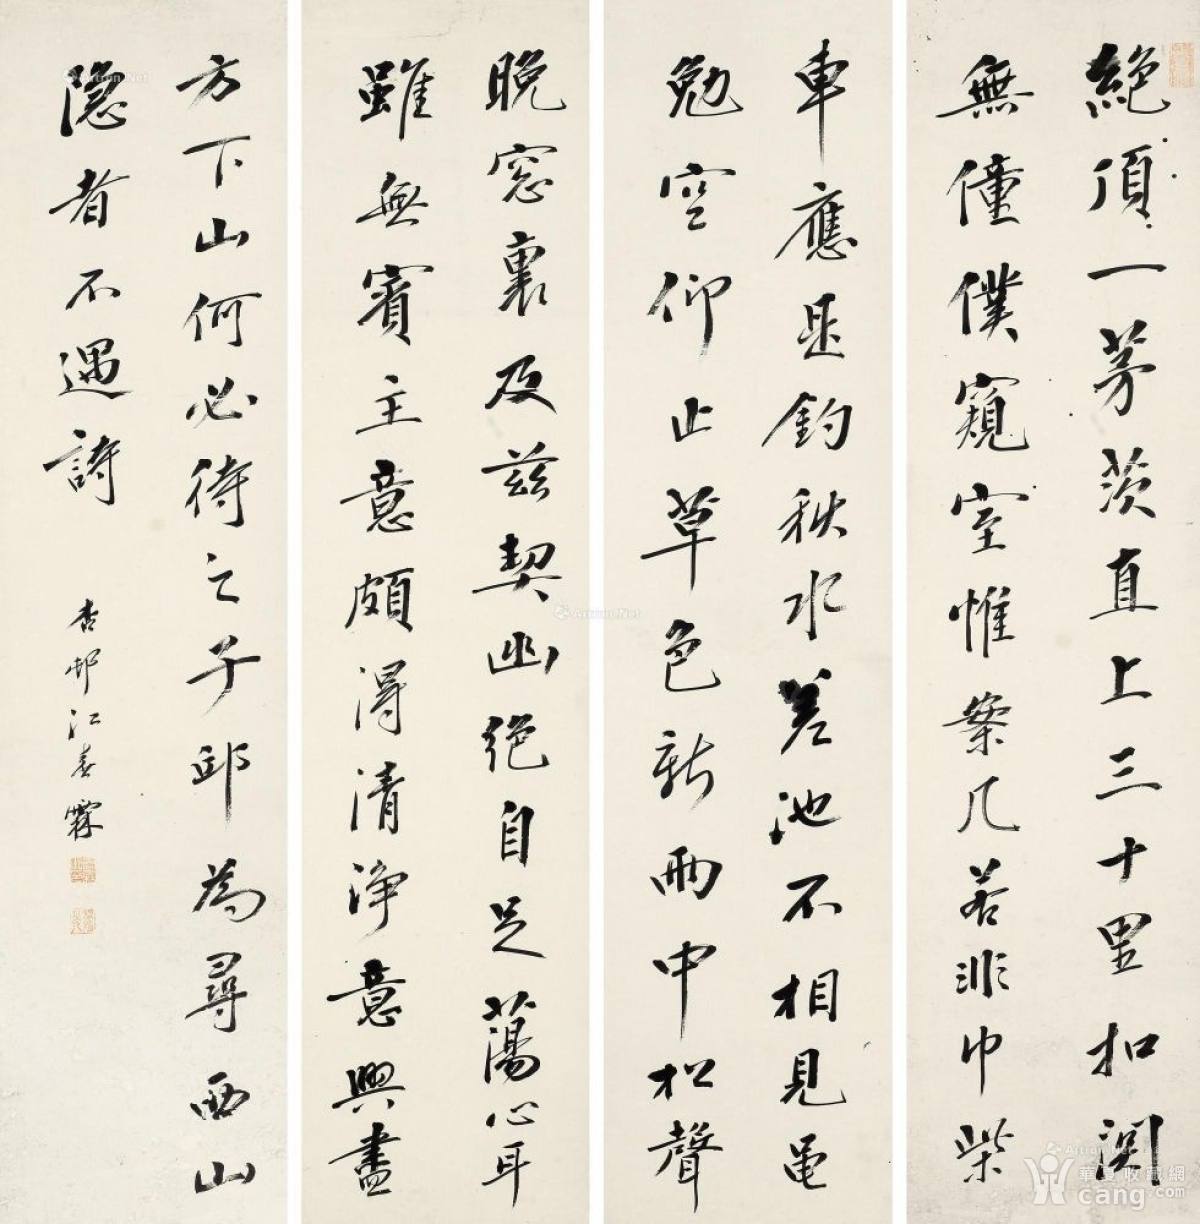 絶頂一茅茨直上三十里扣関
無僮僕窺室惟案几若非巾柴
車應是釣秋水差池不相見黽
勉空仰止草色新雨中松聲
晚窓裏及茲契幽絶自足蕩心耳
雖無賓主意頗得清淨意興盡
方下山何必待之子邱為尋西山
隱者不遇詩
杏邨江春霖
Artron.Net
華夏收藏網
cang.com